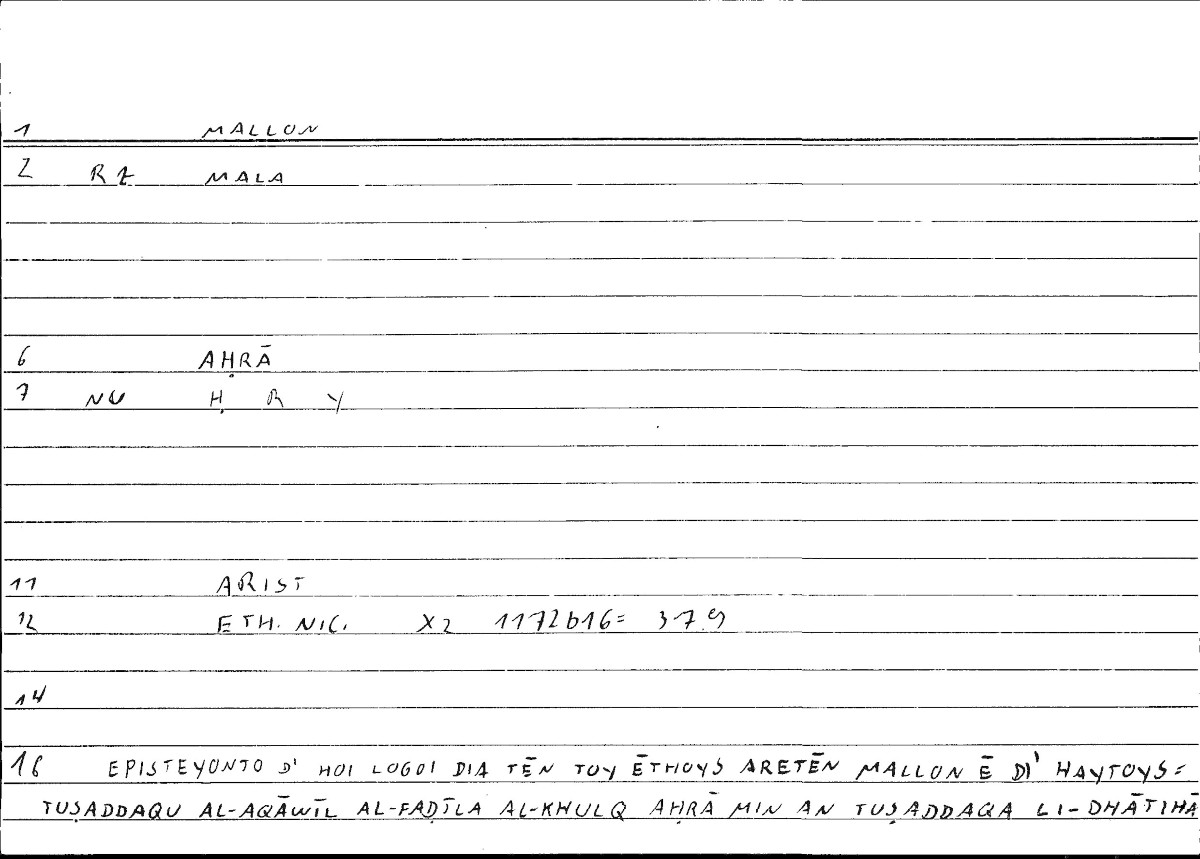 1 MALLON
2 RZ MALA
6 AḤRĀ
7 NU Ḥ R Y
11 ARIST
12 ETH. NIC. X2 1172b16= 379
14
16 EPISTEYONTO D' HOI LOGOI DIA TĒN TOY ĒTHOYS ARETĒN MALLON Ē DI' HAYTOYS=
TUṢADDAQU AL-AQĀWĪL AL-FAḌĪLA AL-KHULQ AḤRĀ MIN AN TUṢADDAQA LI-DHĀTIHĀ